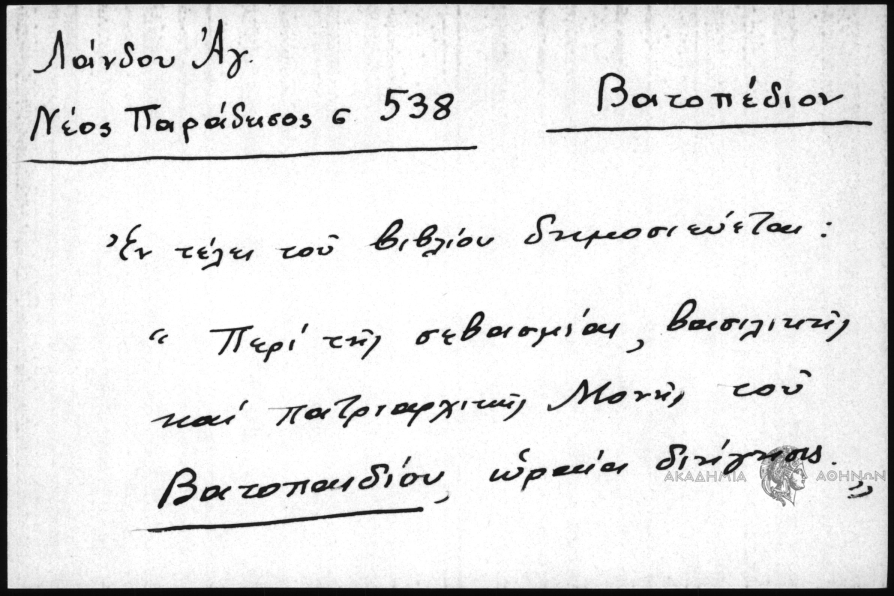 Λάνδου Ἀγ.
Νέος Παράδεισος σ 538
Βατοπέδιον
Ἐν τέλει τοῦ βιβλίου δημοσιεύεται:
“ Περί τῆς σεβασμίας, βασιλικῆς
καί πατριαρχικῆς Μονῆς τοῦ
Βατοπαιδίου, ὡραία διήγησις. ”
ΑΚΑΔΗΜΙΑ ΑΘΗΝΩΝ